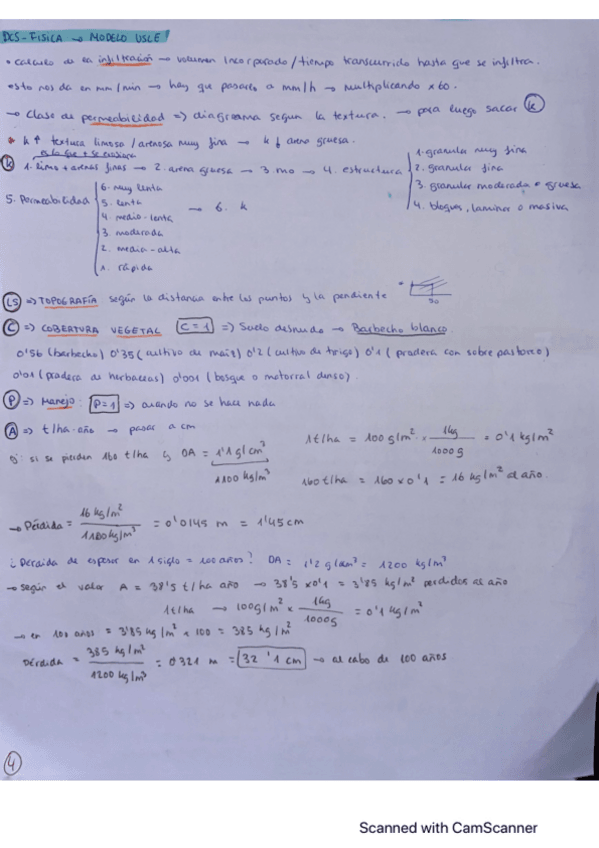 DCS-FISICA → MODELO USLE
• calculo de la infiltración → volumen incorporado / tiempo transcurrido hasta que se infiltra.
• esto nos da en mm/min → hay que pasarlo a mm/h → multiplicando x 60.
→ Clase de permeabilidad => diagrama segun la textura. → para luego sacar K
* k ↑ textura limosa / arenosa muy fina → k ↓ arena gruesa.
es lo que + se erosiona
K 1. limo + arenas finas → 2. arena gruesa → 3. mo → 4. estructura
1. granular muy fina
2. granular fina
3. granular moderada o gruesa
4. bloques, laminar o masiva
5. Permeabilidad
6. muy lenta
5. lenta
4. medio-lenta
3. moderada
2. media-alta
1. rápida
→ 6. k
LS => TOPOGRAFÍA según la distancia entre los puntos y la pendiente
C => COBERTURA VEGETAL C=1 => Suelo desnudo → Barbecho blanco.
0'56 (barbecho) 0'35 (cultivo de maiz) 0'2 (cultivo de trigo) 0'1 (pradera con sobre pastoreo)
0'01 (pradera de herbaceas) 0'001 (bosque o matorral denso).
P => Manejo: P=1 => cuando no se hace nada
A => t/ha·año → pasar a cm
1t/ha = 100 g/m² × 1kg / 1000 g = 0'1 kg/m²
si se pierden 160 t/ha y DA = 1'1 g/cm³
1100 kg/m³
160 t/ha = 160 x 0'1 = 16 kg/m² al año.
→ Pérdida = 16 kg/m² / 1100 kg/m³ = 0'0145 m = 1'45 cm
¿Perdida de espesor en 1 siglo = 100 años? DA = 1'2 g/cm³ = 1200 kg/m³
→ según el valor A = 38'5 t/ha año → 38'5 x 0'1 = 3'85 kg/m² perdidos al año
1t/ha → 100 g/m² x 1kg / 1000g = 0'1 kg/m²
→ en 100 años = 3'85 kg/m² x 100 = 385 kg/m²
Pérdida = 385 kg/m² / 1200 kg/m³ = 0'321 m = 32'1 cm → al cabo de 100 años
4
Scanned with CamScanner